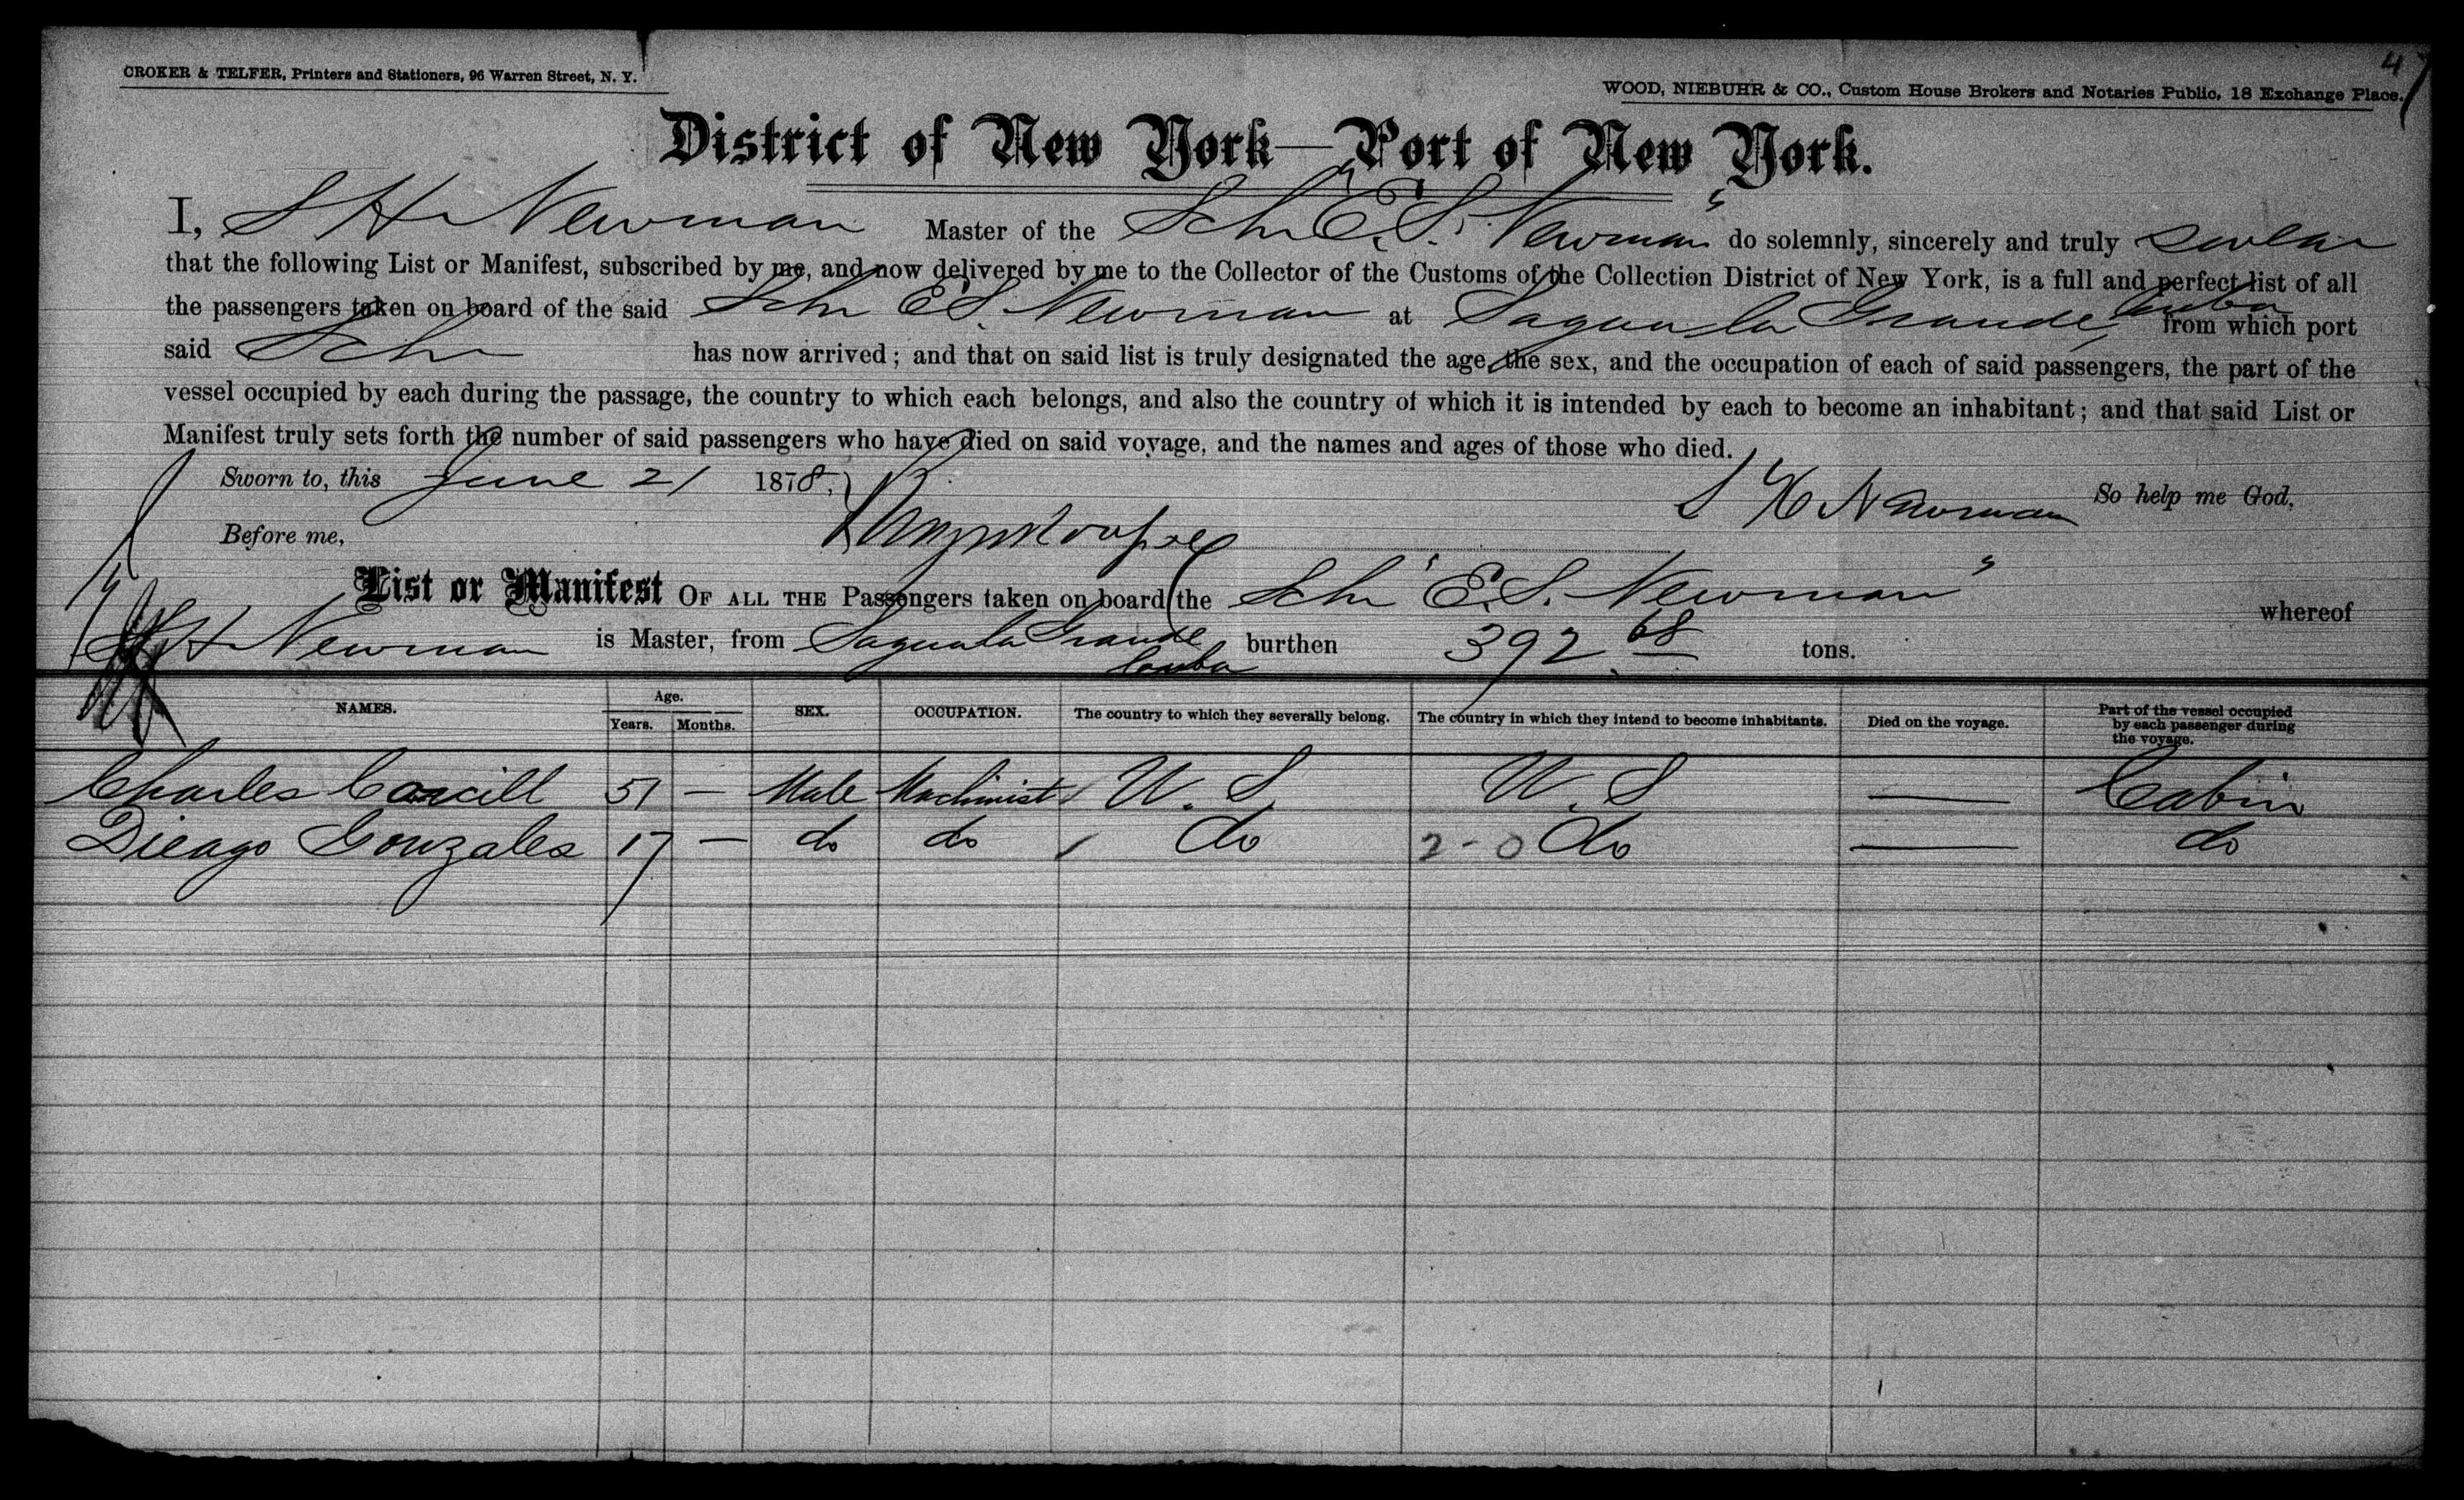 47
CROKER & TELFER, Printers and Stationers, 96 Warren Street, N. Y.
WOOD, NIEBUHR & CO., Custom House Brokers and Notaries Public, 18 Exchange Place.
District of New York—Port of New York.
I, S H Newman Master of the Schr "E. S. Newman" do solemnly, sincerely and truly swear
that the following List or Manifest, subscribed by me, and now delivered by me to the Collector of the Customs of the Collection District of New York, is a full and perfect list of all
the passengers taken on board of the said Schr E S. Newman at Sagua la Grande Cuba from which port
said Schr has now arrived; and that on said list is truly designated the age, the sex, and the occupation of each of said passengers, the part of the
vessel occupied by each during the passage, the country to which each belongs, and also the country of which it is intended by each to become an inhabitant; and that said List or
Manifest truly sets forth the number of said passengers who have died on said voyage, and the names and ages of those who died.
Sworn to, this June 21 1878. S H Newman So help me God.
Before me,
List or Manifest OF ALL THE Passengers taken on board the Schr "E. S. Newman" whereof
S H Newman is Master, from Sagua la Grande Cuba burthen 392 68 tons.
NAMES. Age. Years. Months. SEX. OCCUPATION. The country to which they severally belong. The country in which they intend to become inhabitants. Died on the voyage. Part of the vessel occupied by each passenger during the voyage.
Charles 51 — Male Machinist U. S U. S — Cabin
Dieago Gonzales 17 — do do do 2-0 do — do